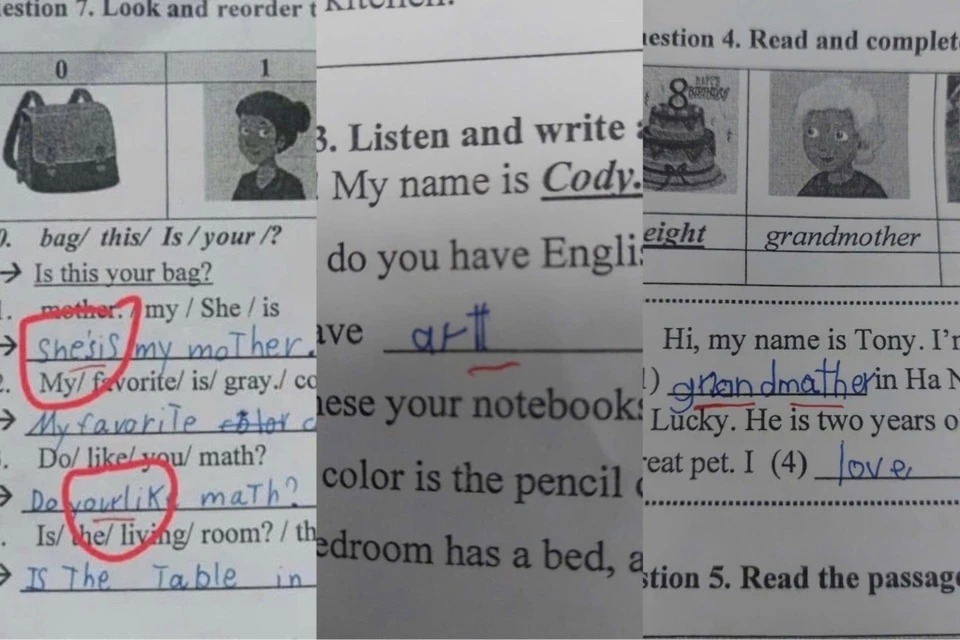 estion 7. Look and reorder t
0 1
0. bag/ this/ Is / your /?
→ Is this your bag?
mother. / my / She / is
→ she'sis my moTher.
2. My/ favorite/ is/ gray./ co
→ My favoriTe color c
Do/ like/ you/ math?
→ Do yourlik maTh?
Is/ the/ living/ room? / th
→ IS The Table in
kitchen.
3. Listen and write a
My name is Cody.
do you have Englis
ave artt
hese your notebooks
color is the pencil c
edroom has a bed, a
estion 4. Read and complete
8 HAPPY BIRTHDAY
eight grandmother
Hi, my name is Tony. I'm
1) grandmather in Ha N
Lucky. He is two years o
reat pet. I (4) love
stion 5. Read the passage